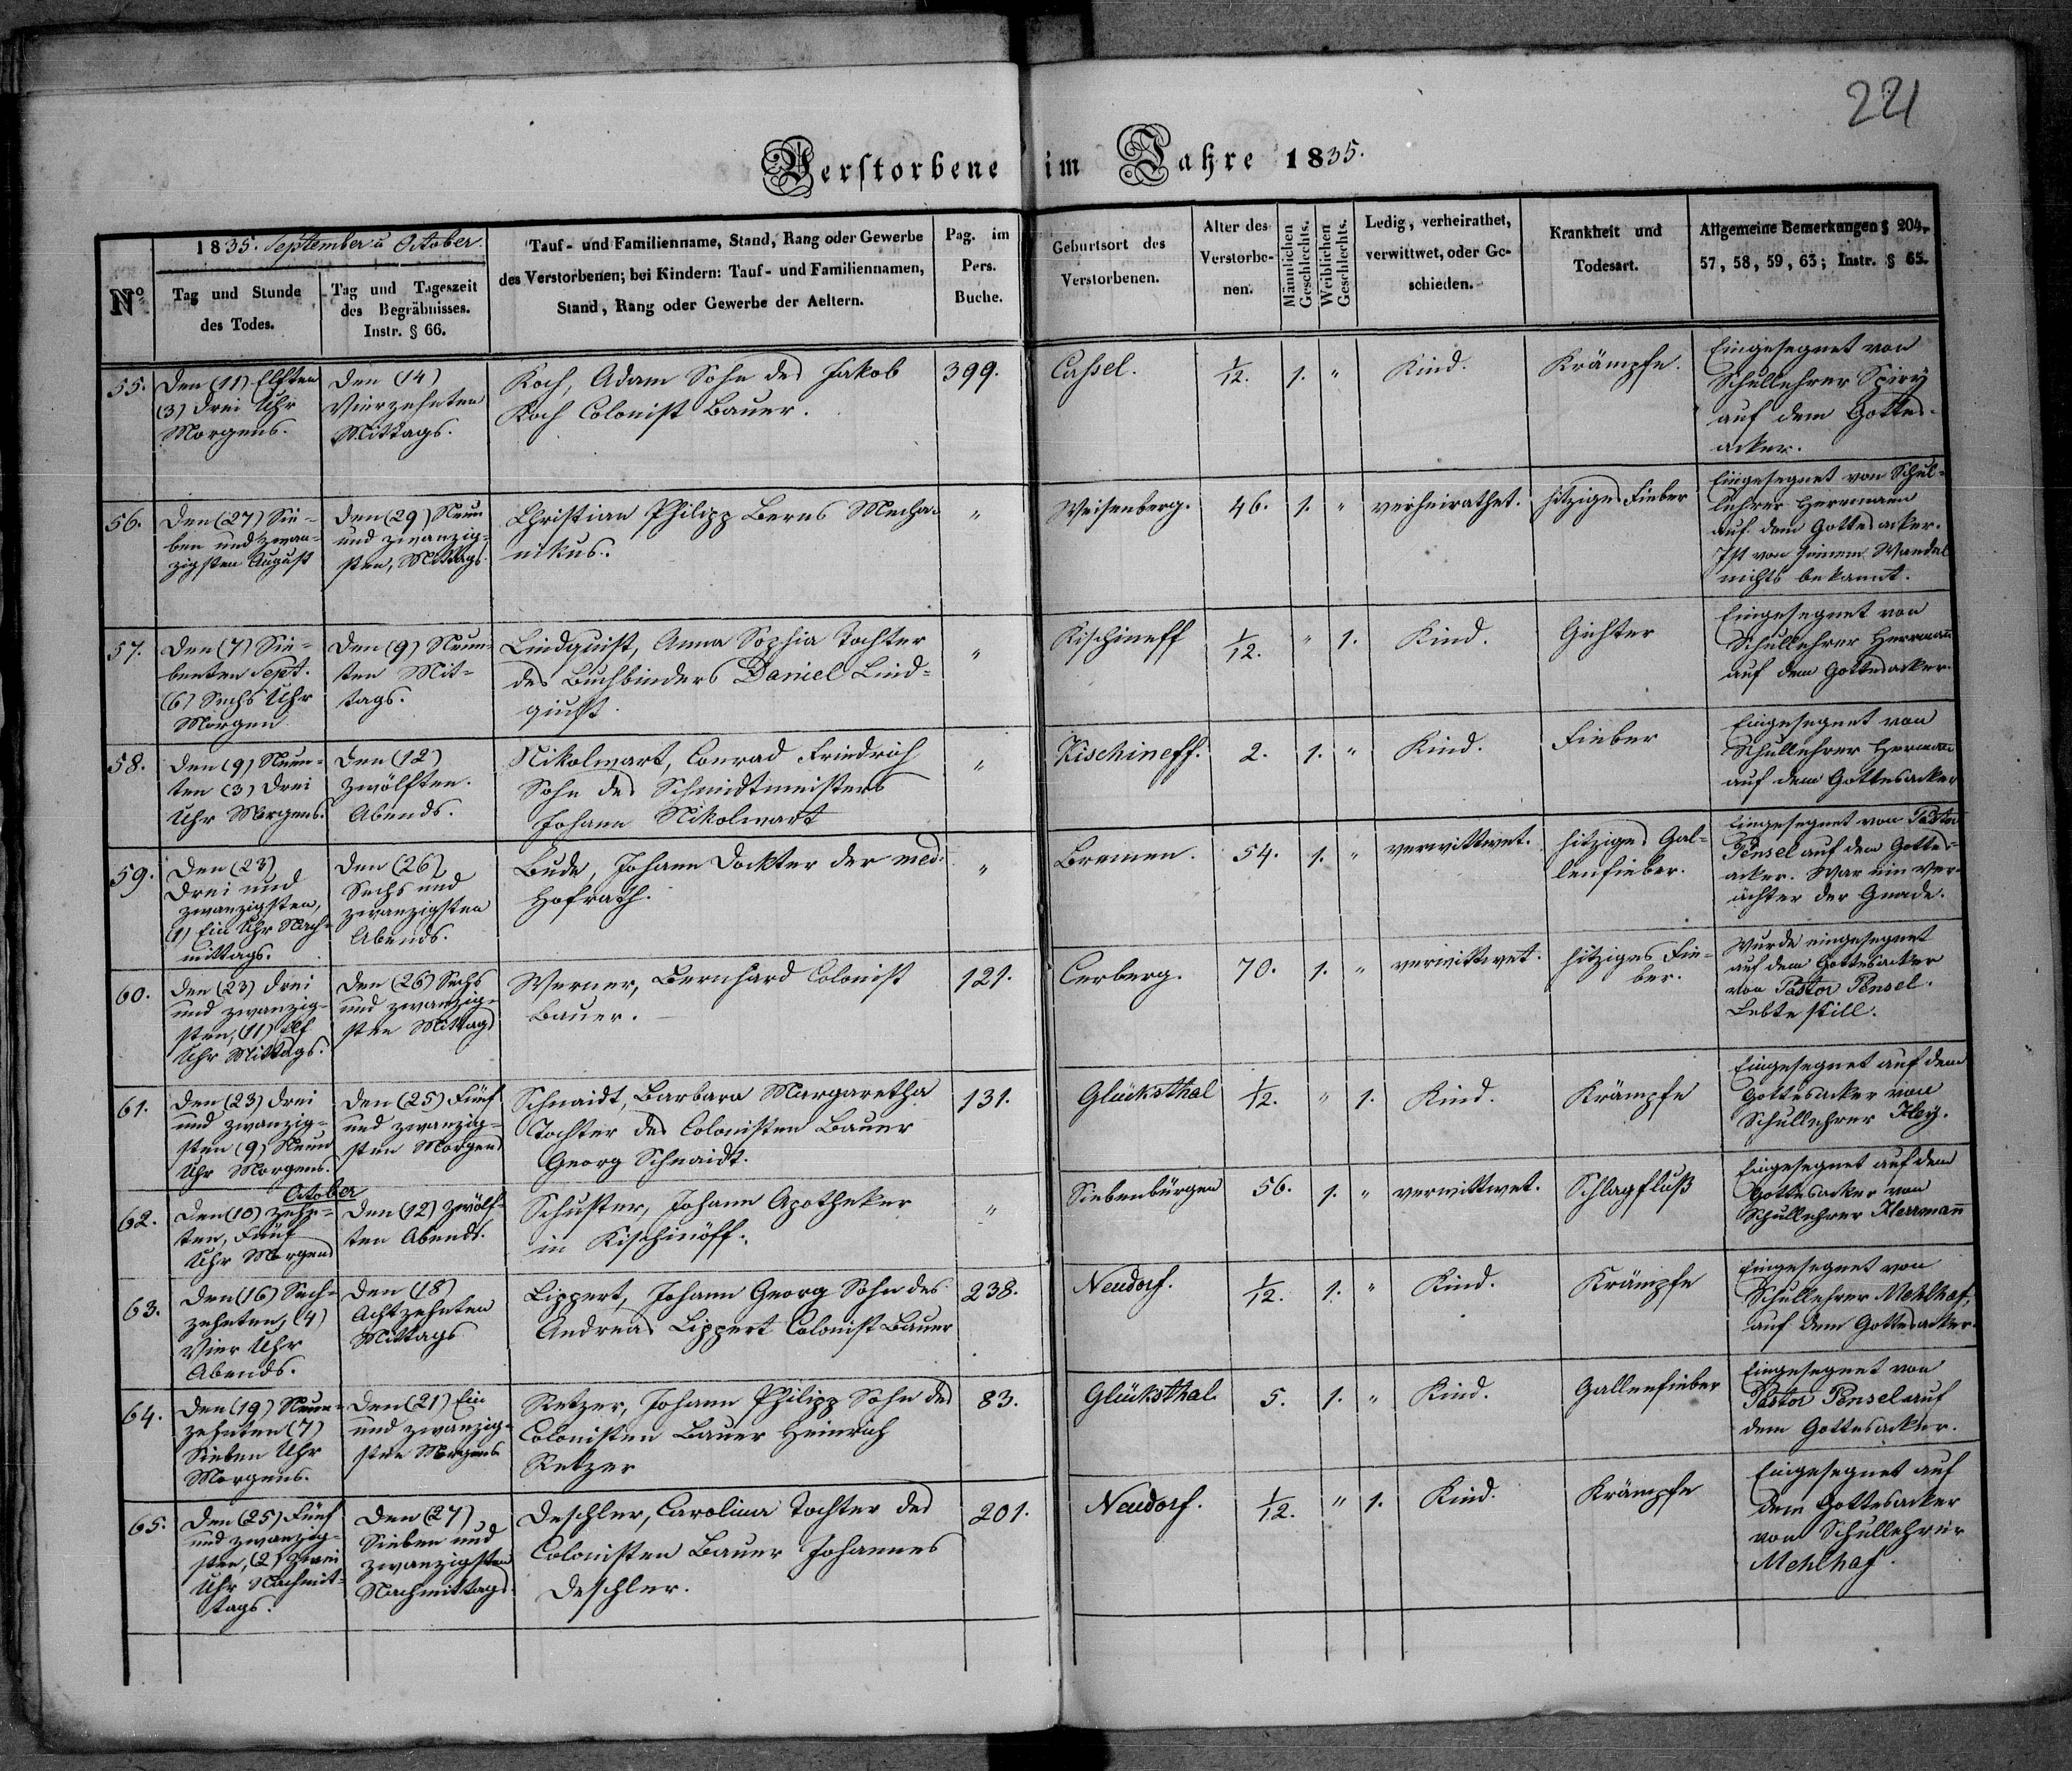 221
Verstorbene im Jahre 1835.
Nº
1835. September u October.
Tag und Stunde
des Todes.
Tag und Tageszeit
des Begräbnisses.
Instr. § 66.
Tauf- und Familienname, Stand, Rang oder Gewerbe
des Verstorbenen; bei Kindern: Tauf- und Familiennamen,
Stand, Rang oder Gewerbe der Aeltern.
Pag. im
Pers.
Buche.
Geburtsort des
Verstorbenen.
Alter des
Verstorbe-
nen.
Männlichen
Geschlechts.
Weiblichen
Geschlechts.
Ledig, verheirathet,
verwittwet, oder Ge-
schieden.
Krankheit und
Todesart.
Allgemeine Bemerkungen § 204.
57, 58, 59, 63; Instr. § 65.
55.
Den (11) Elften
(3) drei Uhr
Morgens.
Den (14)
Vierzehnten
Mittags.
Koch, Adam Sohn des Jakob
Koch Colonist Bauer.
399.
Cassel.
1/12.
1.
"
Kind.
Krämpfe.
Eingesegnet von
Schullehrer Spiry
auf dem Gottes-
acker.
56.
Den (27) Sie-
ben und zwan-
zigsten August
Den (29) Neun
und zwanzig-
sten, Mittags
Christian Philipp Berns Mecha-
nikus.
"
Weisenberg.
46.
1.
"
verheirathet.
hitziges Fieber
Eingesegnet von Schul-
lehrer Herrmann
auf dem Gottesacker.
Ist von seinem Wandel
nichts bekannt.
57.
Den (7) Sie-
benten Sept.
(6) Sechs Uhr
Morgen
Den (9) Neun-
ten Mit-
tags.
Lindquist, Anna Sophia Tochter
des Buchbinders Daniel Lind-
quist.
"
Kischineff
1/12.
"
1.
Kind.
Gichter
Eingesegnet von
Schullehrer Herrmann
auf dem Gottesacker.
58.
Den (9) Neun-
ten (3) drei
Uhr Morgens.
Den (12)
Zwölften.
Abends.
Nikolwart, Conrad Friedrich
Sohn des Schmidtmeisters
Johann Nikolwart
"
Kischineff.
2.
1.
"
Kind.
Fieber
Eingesegnet von
Schullehrer Hermann
auf dem Gottesacker
59.
Den (23)
drei und
zwanzigsten,
(1) Ein Uhr Nach-
mittags.
Den (26)
Sechs und
zwanzigsten
Abends.
Bude, Johann Dockter der med.
Hofrath.
"
Bremen.
54.
1.
"
verwittwet.
hitziges Gal-
lenfieber.
Eingesegnet von Pastor
Pensel auf dem Gottes-
acker. War ein Ver-
ächter der Gnade.
60.
Den (23) drei
und zwanzig-
sten, (11) Elf
Uhr Mittags.
Den (26) Sechs
und zwanzig-
sten Mittags
Werner, Bernhard Colonist
Bauer.
121.
Cerberg.
70.
1.
"
verwittwet.
hitziges Fie-
ber.
Wurde eingesegnet
auf dem Gottesacker
von Pastor Pensel.
Lebte still.
61.
Den (23) drei
und zwanzig-
sten (9) Neun
Uhr Morgens.
Den (25) Fünf
und zwanzig-
sten Morgens
Schnaidt, Barbara Margaretha
Tochter des Colonisten Bauer
Georg Schnaidt.
131.
Glücksthal
1/12.
"
1.
Kind.
Krämpfe
Eingesegnet auf dem
Gottesacker von
Schullehrer Kley.
62.
October
Den (10) Zehn-
ten, Fünf
Uhr Morgens
Den (12) Zwölf-
ten Abends.
Schuster, Johann Apotheker
in Kischinöff.
"
Siebenbürgen
56.
1.
"
verwittwet.
Schlagfluß
Eingesegnet auf dem
Gottesacker von
Schullehrer Herrmann
63.
Den (16) Sech-
zehnten, (4)
Vier Uhr
Abends.
Den (18)
Achtzehnten
Mittags
Lippert, Johann Georg Sohn des
Andreas Lippert Colonist Bauer
238.
Neudorf.
1/12.
1.
"
Kind.
Krämpfe
Eingesegnet von
Schullehrer Mehlhaf,
auf dem Gottesacker.
64.
Den (19) Neun-
zehnten (7)
Sieben Uhr
Morgens.
Den (21) Ein
und zwanzig-
sten Morgens
Retzer, Johann Philipp Sohn des
Colonisten Bauer Heinrich
Retzer
83.
Glücksthal.
5.
1.
"
Kind.
Gallenfieber
Eingesegnet von
Pastor Pensel auf
dem Gottesacker.
65.
Den (25) Fünf
und zwanzig-
sten, (2) Zwei
Uhr Nachmit-
tags.
Den (27)
Sieben und
zwanzigsten
Nachmittags.
Deschler, Carolina Tochter des
Colonisten Bauer Johannes
Deschler.
201.
Neudorf.
1/12.
"
1.
Kind.
Krämpfe
Eingesegnet auf
dem Gottesacker
von Schullehrer
Mehlhaf.